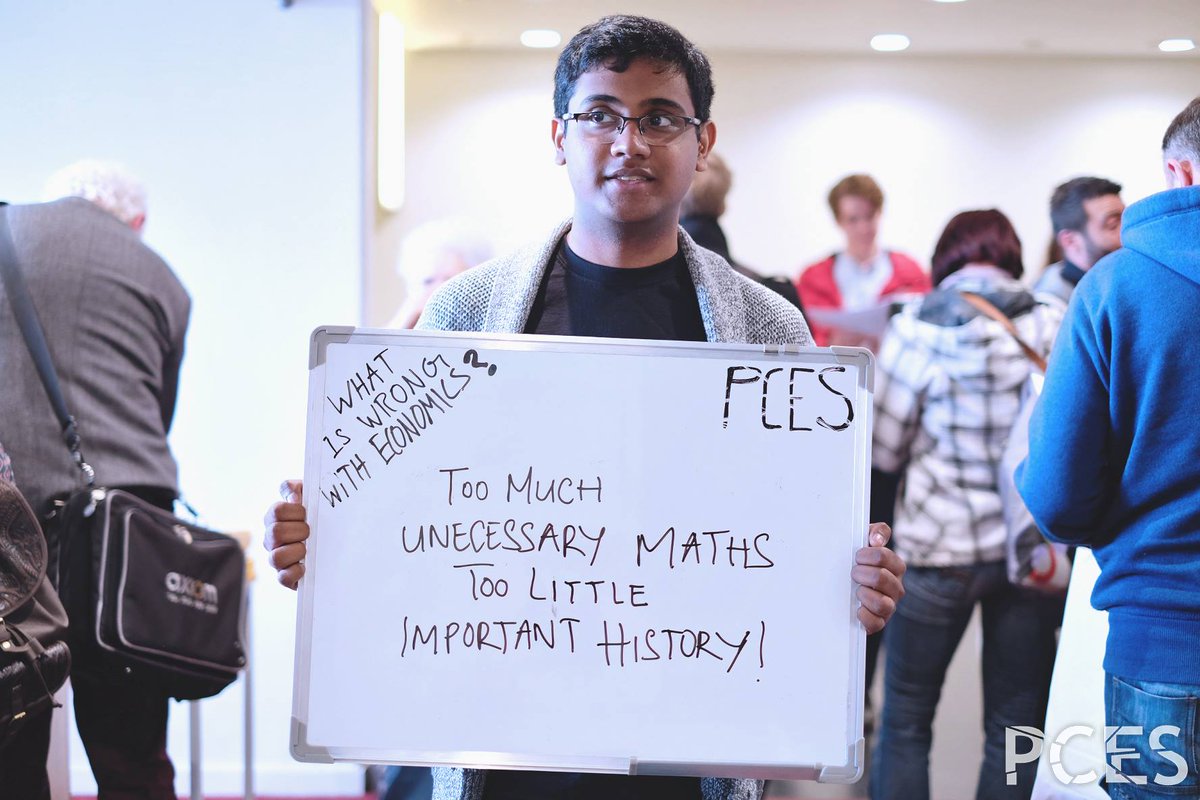 WHAT
IS WRONG
WITH ECONOMICS?
PCES
TOO MUCH
UNECESSARY MATHS
TOO LITTLE
IMPORTANT HISTORY!
axiom
PCES